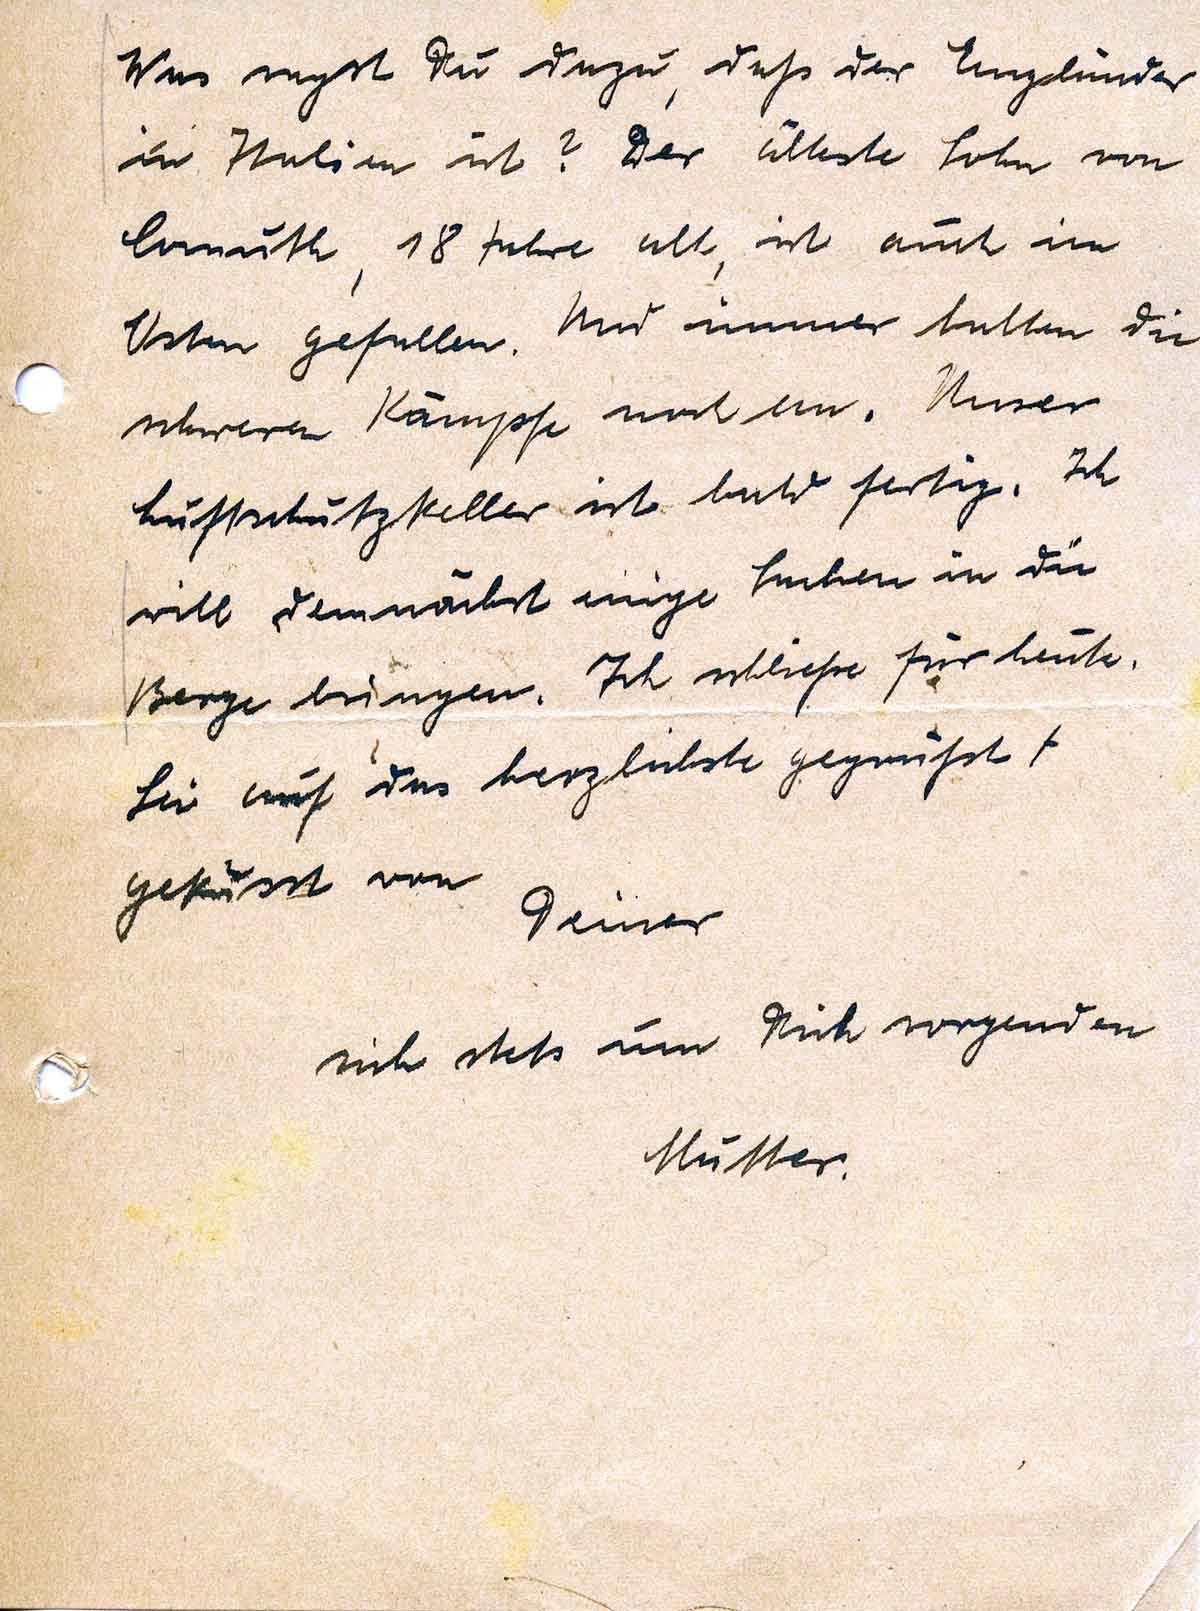 Was sagst Du dazu, daß der Engländer
in Italien ist? Der älteste Sohn von
Cornuth, 18 Jahre alt, ist auch im
Osten gefallen. Und immer halten die
schweren Kämpfe noch an. Unser
Luftschutzkeller ist bald fertig. Ich
will demnächst einige Sachen in die
Berge bringen. Ich schließe für heute.
Sei auf das herzlichste gegrüßt +
geküsst von
Deiner
sich stets um Dich sorgenden
Mutter.